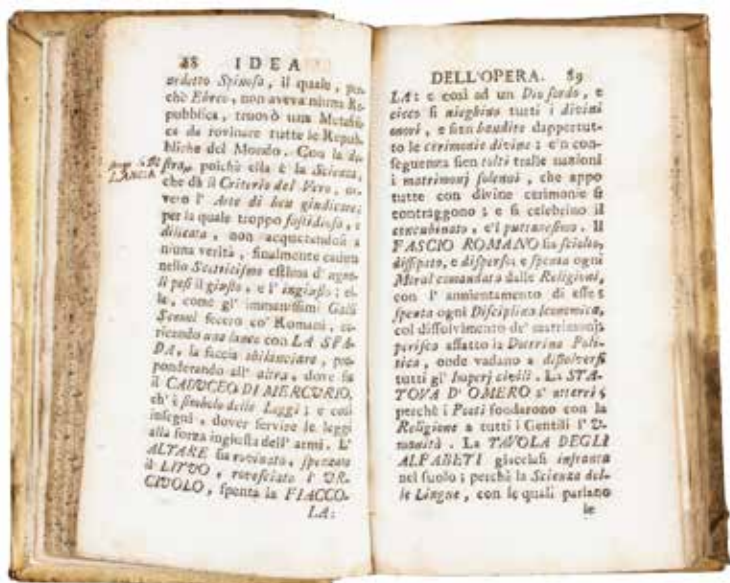 88 IDEA
nedetto Spinosa, il quale, per-
chè Ebreo, non aveva niuna Re-
pubblica, truovò una Metafisi-
ca da rovinare tutte le Repub-
bliche del Mondo. Con la de-
stra, poichè ella è la Scienza,
che dà il Criterio del Vero, ov-
vero l' Arte di ben giudicare;
per la quale troppo fastidiosa, e
dilicata, non acquetandosi a
niuna verità, finalmente caduta
nello Scetticismo estima d' ugua-
li pesi il giusto, e l' ingiusto; el-
la, come gl' immanissimi Galli
Sennoni fecero co' Romani, ca-
ricando una lance con LA SPA-
DA, la faccia sbilanciare, pre-
ponderando all' altra, dove sia
il CADUCEO DI MERCURIO,
ch' è simbolo delle Leggi; e così
insegni, dover servire le leggi
alla forza ingiusta dell' armi. L'
ALTARE sia rovinato, spezzato
il LITVO, rovesciato l' VR-
CIVOLO, spenta la FIACCO-
LA:
LANCIA
DELL'OPERA. 89
LA: e così ad un Dio sordo, e
cieco si nieghino tutti i divini
onori, e sien bandite dappertut-
to le cerimonie divine; e 'n con-
seguenza sien tolti tralle nazioni
i matrimonj solenni, che appo
tutte con divine cerimonie si
contraggono; e si celebrino il
concubinato, e 'l puttanesimo. Il
FASCIO ROMANO sia sciolto,
dissipato, e disperso; e spenta ogni
Moral comandata dalle Religioni,
con l' annientamento di esse;
spenta ogni Disciplina Iconomica,
col dissolvimento de' matrimonj;
perisca affatto la Dottrina Poli-
tica, onde vadano a dissolversi
tutti gl' Imperj civili. La STA-
TOVA D' OMERO s' atterri;
perchè i Poeti fondarono con la
Religione a tutti i Gentili l' V-
manità. La TAVOLA DEGLI
ALFABETI giacciasi infranta
nel suolo; perchè la Scienza del-
le Lingue, con le quali parlano
le